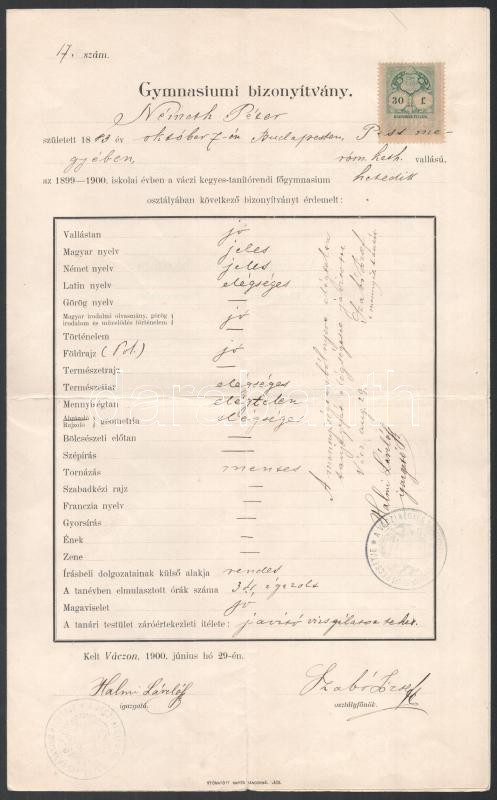 17. szám.
30 f
Gymnasiumi bizonyítvány.
Németh Péter
született 1883 év október 7-én Budapesten, Pest me-
gyében, róm. kath. vallású,
az 1899—1900. iskolai évben a váczi kegyes-tanítórendi főgymnasium hetedik
osztályában következő bizonyítványt érdemelt:
Vallástan jó
Magyar nyelv jeles
Német nyelv jeles
Latin nyelv elégséges
Görög nyelv —
Magyar irodalmi olvasmány, görög
irodalom és művelődés történelem jó
Történelem —
Földrajz (Pol.) jó
Természetrajz —
Természettan elégséges
Mennyiségtan elégtelen
Ábrázoló
Rajzoló geometria elégséges
Bölcsészeti előtan —
Szépírás —
Tornázás mentes
Szabadkézi rajz —
Franczia nyelv —
Gyorsírás —
Ének —
Zene —
Írásbeli dolgozatainak külső alakja rendes
A tanévben elmulasztott órák száma 34 igazolt
Magaviselet jó
A tanári testület záróértekezleti ítélete: javító vizsgálatot tehet.
A mennyiségtanból
Halmi László
igazgató
Kelt Váczon, 1900. június hó 29-én.
Halmi László
igazgató.
Szabó József
osztályfőnök.